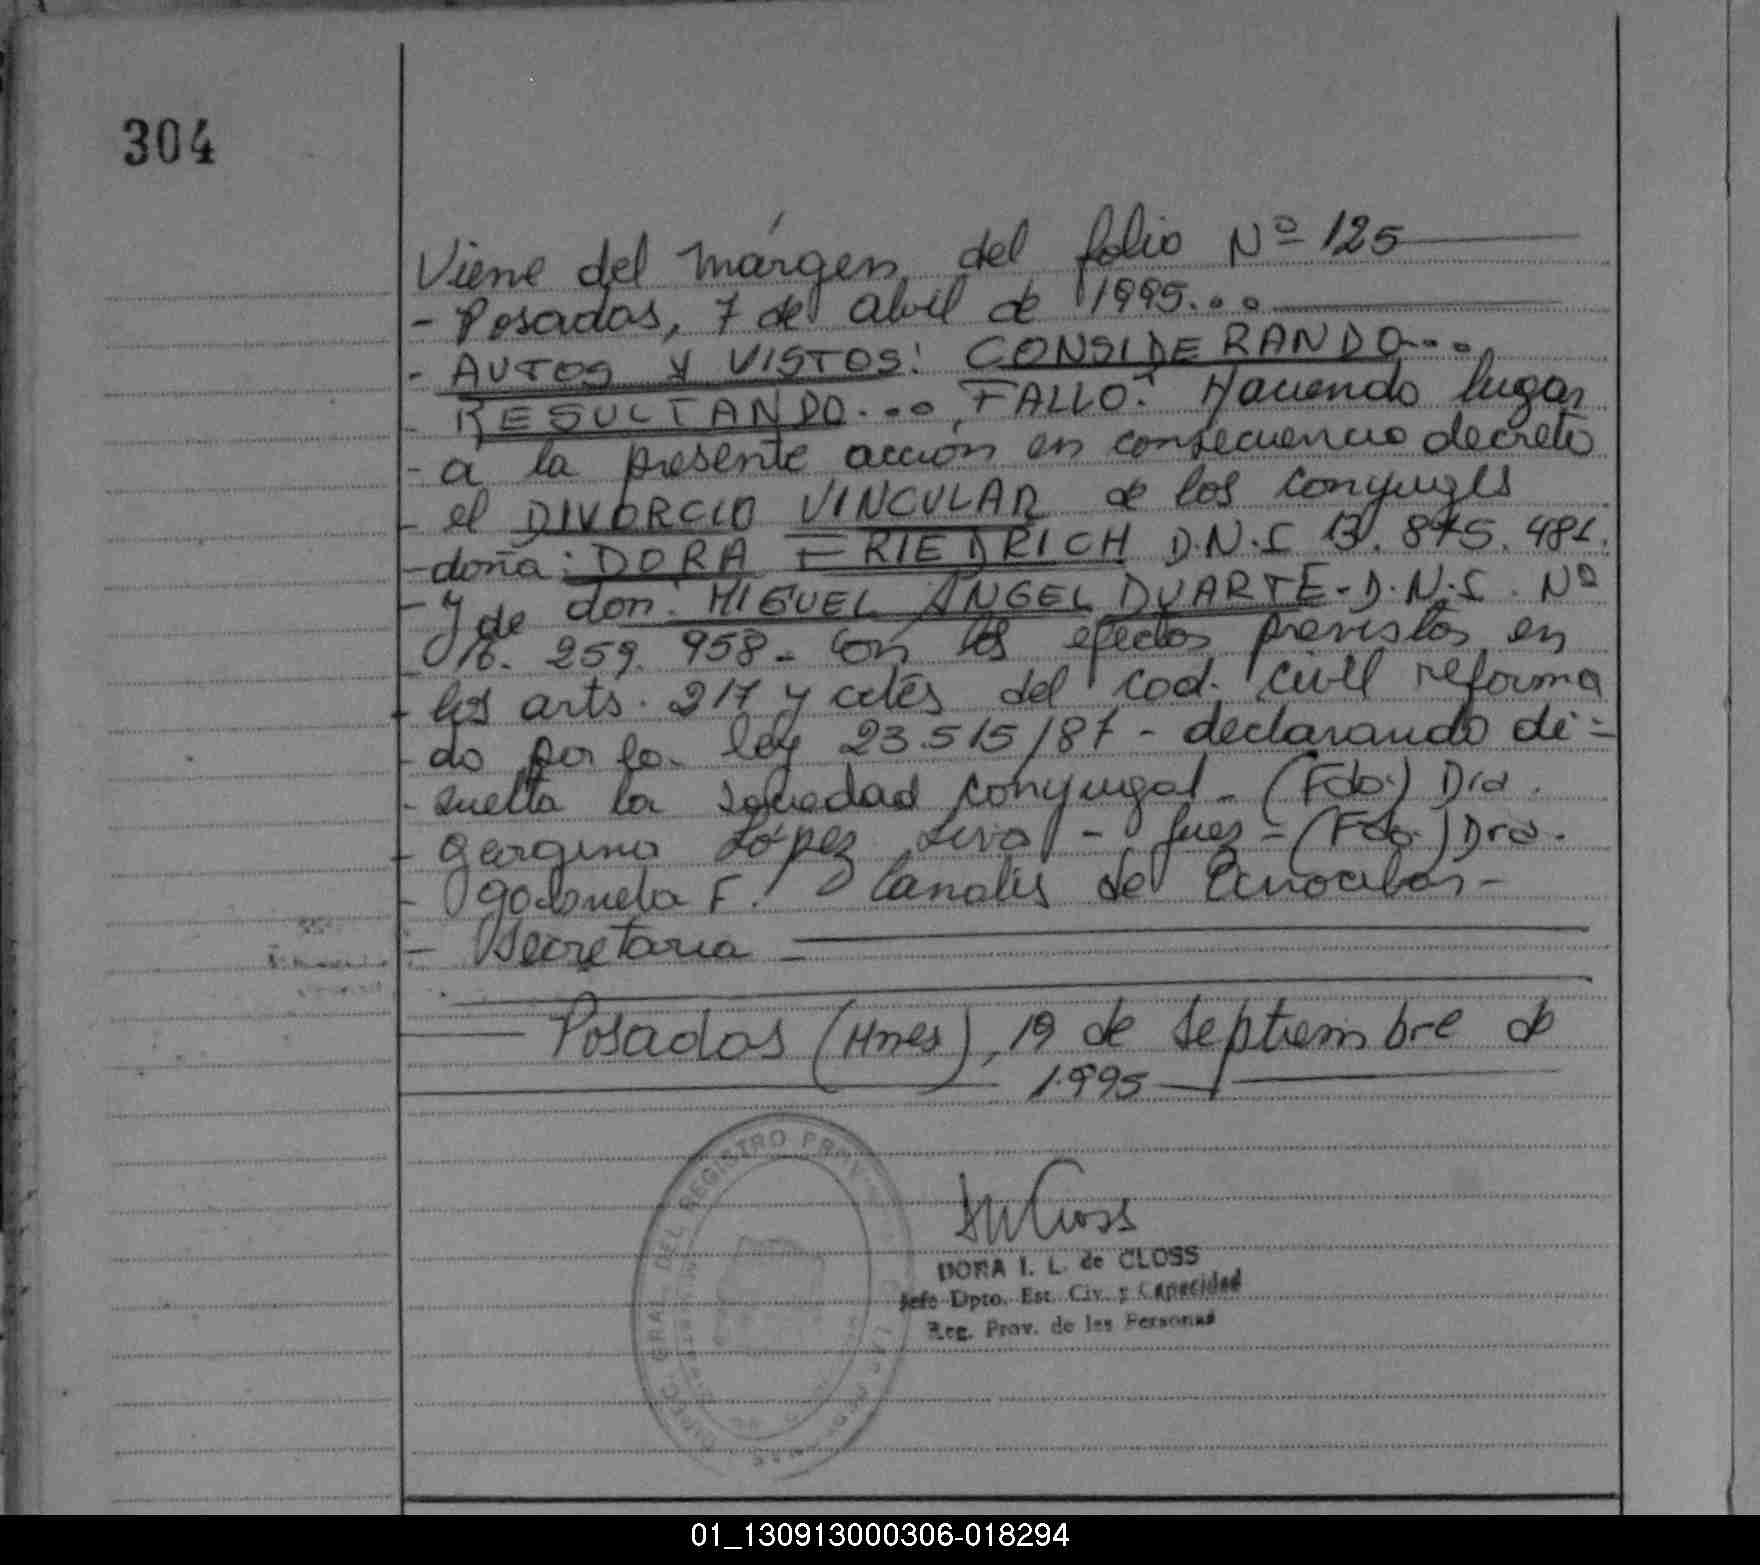 304
Viene del márgen del folio Nº 125
- Posadas, 7 de abril de 1995...
- AUTOS Y VISTOS: CONSIDERANDO...
RESULTANDO... FALLO: Haciendo lugar
- a la presente acción en consecuencia decreto
- el DIVORCIO VINCULAR de los conyuges
- doña: DORA FRIEDRICH D.N.I 13.875.481.
- y de don: MIGUEL ANGEL DUARTE - D.N.I. Nº
16.259.958 - con los efectos previstos en
- los arts. 217 y cctes del cod. civil reforma
- do por la ley 23.515/87 - declarando di=
- suelta la sociedad conyugal - (Fdo.) Dra.
- Georgina López - Juez - (Fdo.) Dra.
- F. Canalis de
- Secretaria -
Posadas (Mnes), 19 de septiembre de
1.995
DIREC. GRAL. DEL REGISTRO PROV.
DORA I. L. de CLOSS
Jefe Dpto. Est. Civ. y Capacidad
Reg. Prov. de las Personas
01_130913000306-018294